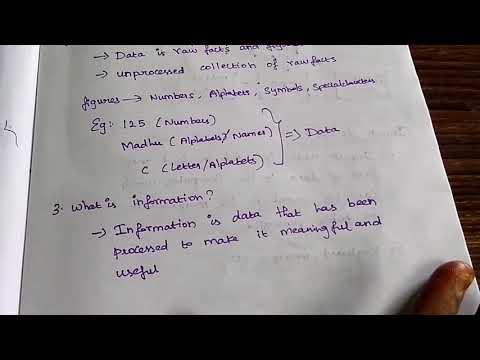 → Data is raw facts and figures
→ unprocessed collection of raw facts
figures → Numbers, Alphabets, Symbols, Special charecters
Eg:- 125 (Numbers)
Madhu (Alphabets/Names)
C (Letter/Alphabets)
⇒ Data
3. What is information?
→ Information is data that has been
processed to make it meaningful and
useful